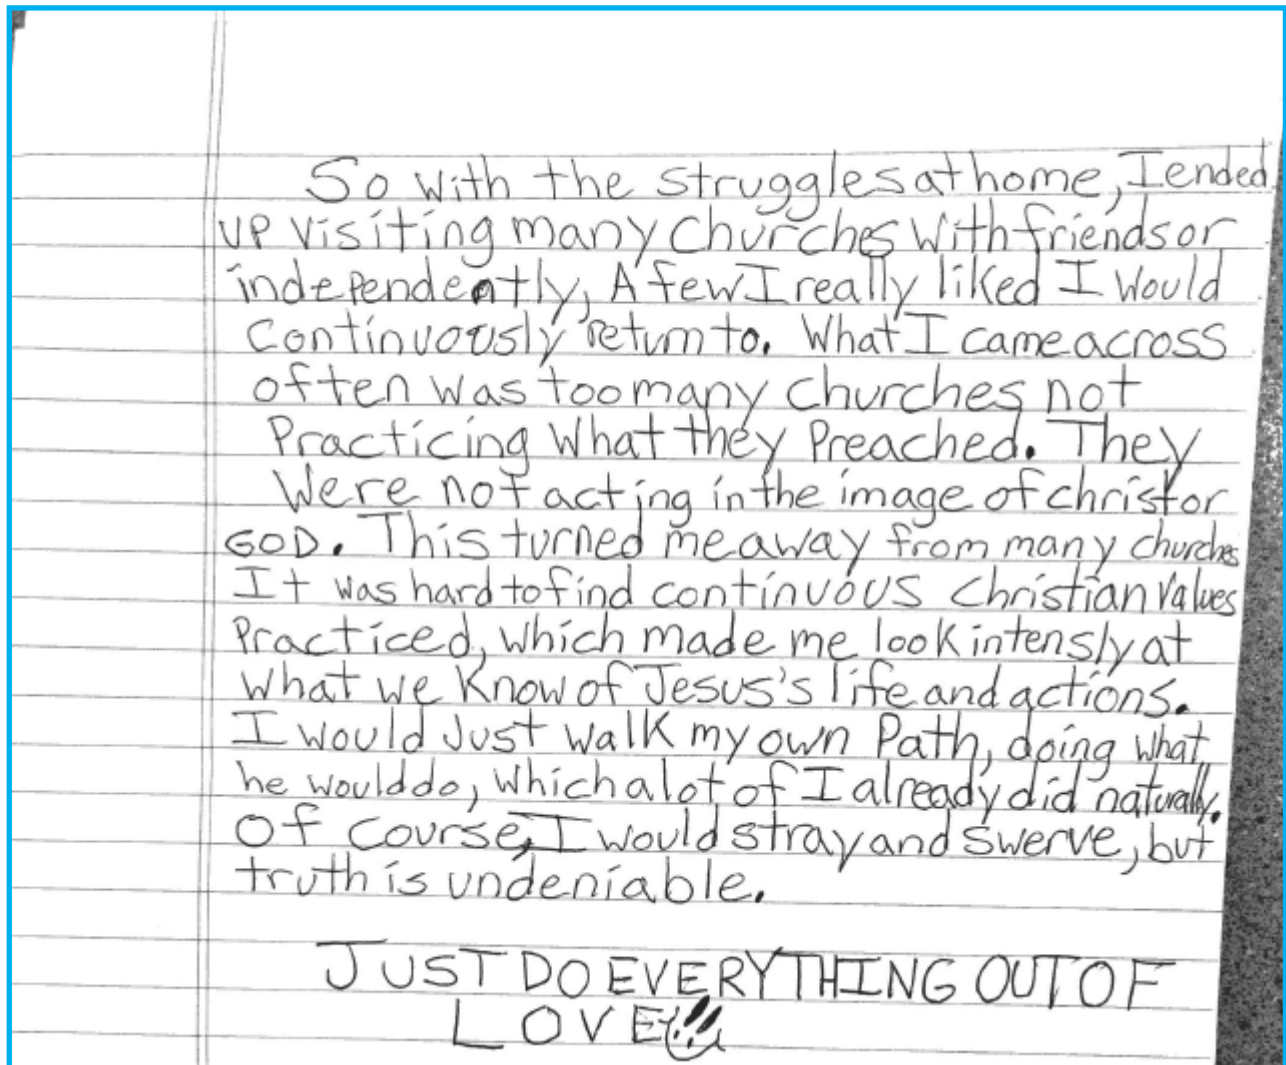 So with the struggles at home, I ended
up visiting many churches with friends or
independently, A few I really liked I would
continuously return to. What I came across
often was too many churches not
Practicing What they Preached. They
Were not acting in the image of christ or
GOD. This turned me away from many churches
It was hard to find continuous Christian Values
Practiced, which made me look intensly at
what we know of Jesus's life and actions.
I would Just walk my own Path, doing what
he would do, which a lot of I already did naturally.
Of course, I would stray and swerve, but
truth is undeniable.
JUST DO EVERYTHING OUT OF
LOVE!!